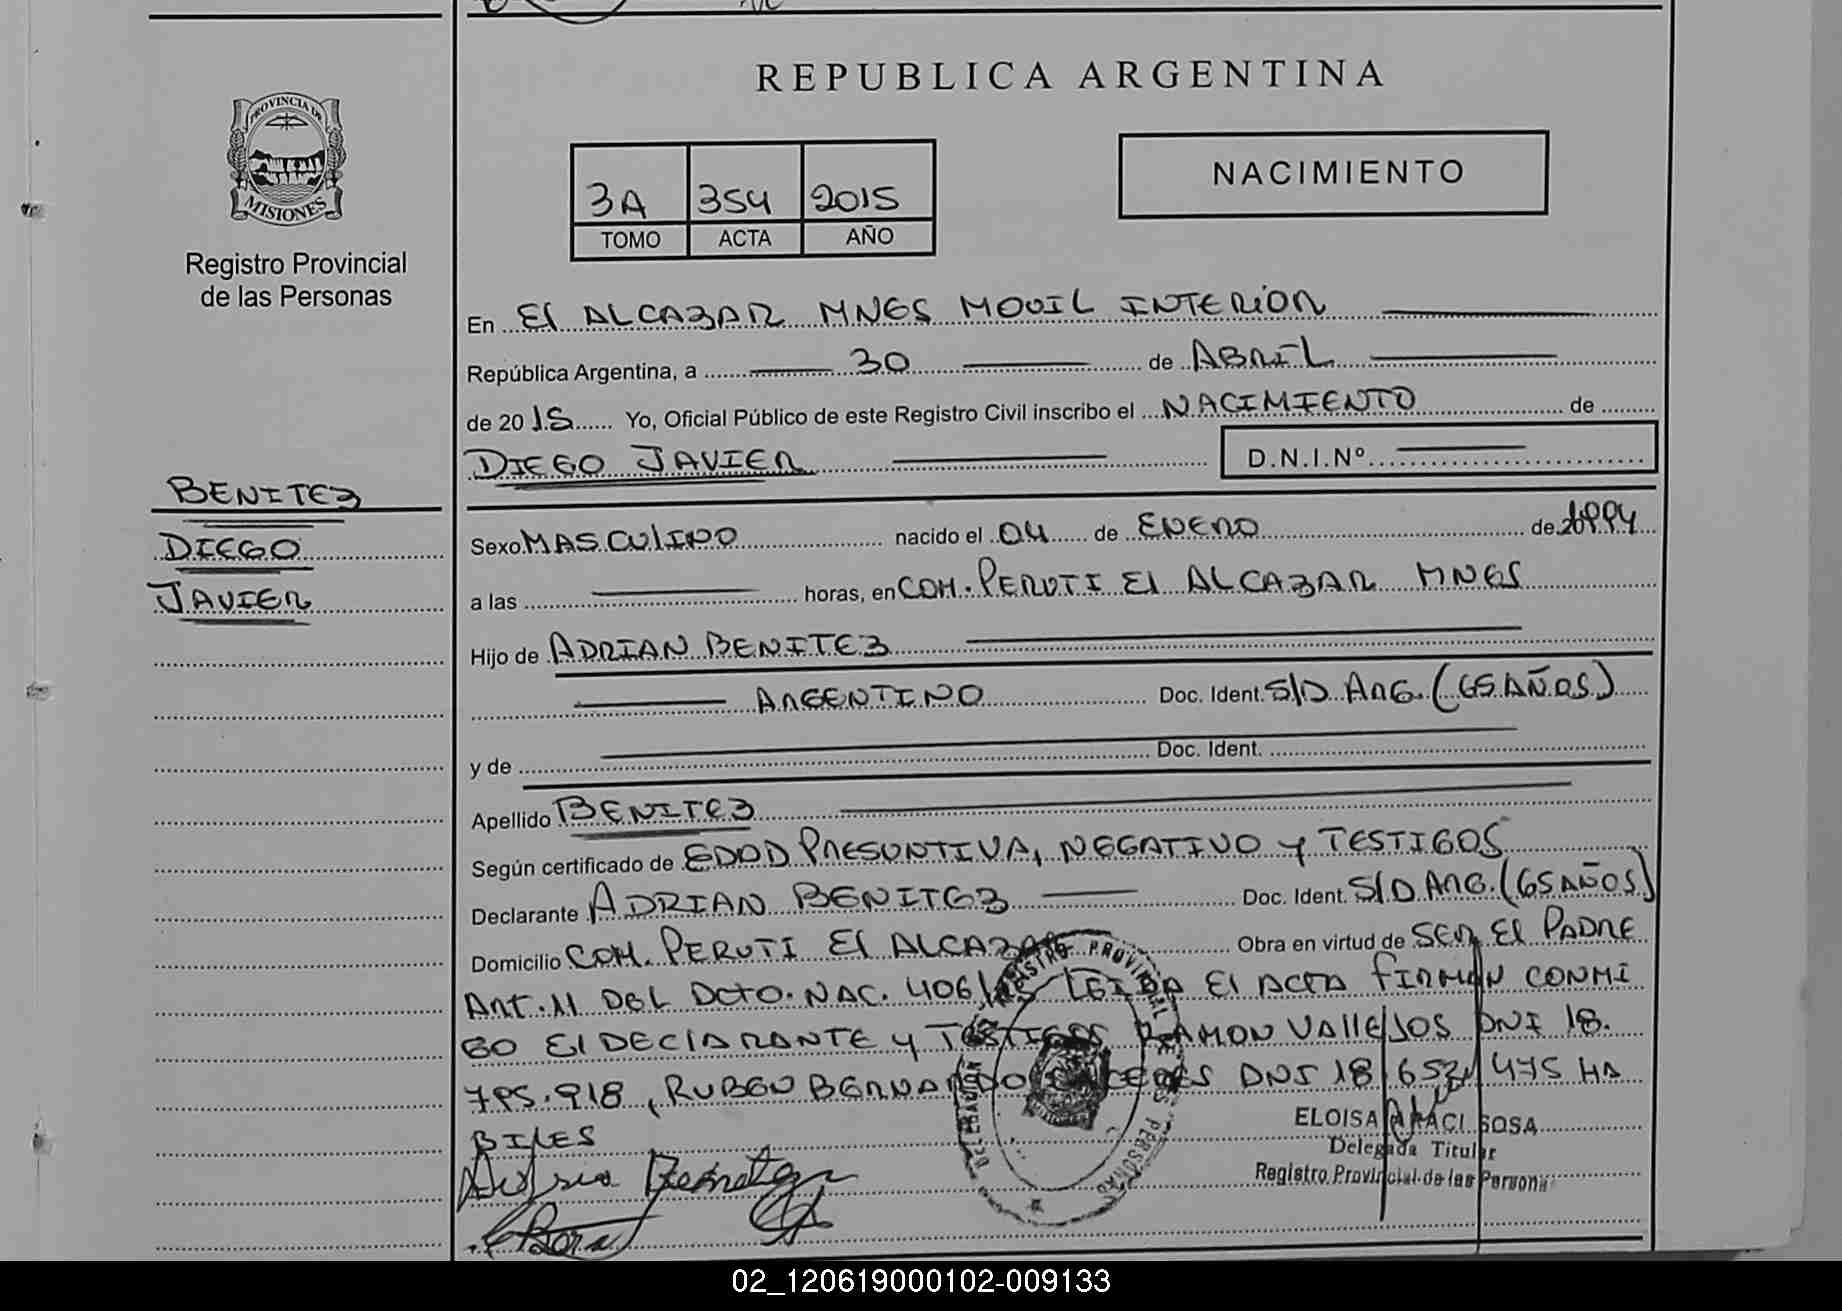 REPUBLICA ARGENTINA
PROVINCIA DE
MISIONES
Registro Provincial
de las Personas
3A 354 2015
TOMO ACTA AÑO
NACIMIENTO
En El ALCAZAR MNES MOVIL INTERIOR
República Argentina, a 30 de ABRIL
de 2015 Yo, Oficial Público de este Registro Civil inscribo el NACIMIENTO de
DIEGO JAVIER D.N.I.Nº
BENITEZ
DIEGO
JAVIER
Sexo MASCULINO nacido el 04 de ENERO de 1994
a las horas, en COM. PERUTI El ALCAZAR MNES
Hijo de ADRIAN BENITEZ
ARGENTINO Doc. Ident. S/D ARG. (65 AÑOS)
y de Doc. Ident.
Apellido BENITEZ
Según certificado de EDAD PRESUNTIVA, NEGATIVO y TESTIGOS
Declarante ADRIAN BENITEZ Doc. Ident. S/D ARG. (65 AÑOS)
Domicilio COM. PERUTI El ALCAZAR Obra en virtud de SER El PADRE
ART. 11 DEL DCTO. NAC. 406/15 LEIDA El ACTA FIRMAN CONMI
GO El DECLARANTE y TESTIGOS RAMON VALLEJOS DNI 18.
795.918, RUBEN BERNARDO DNI 18 652 475 HA
BILES
ELOISA ARACI SOSA
Delegada Titular
Registro Provincial de las Personas
REGISTRO PROVINCIAL DE LAS PERSONAS
DELEGACION
02_120619000102-009133